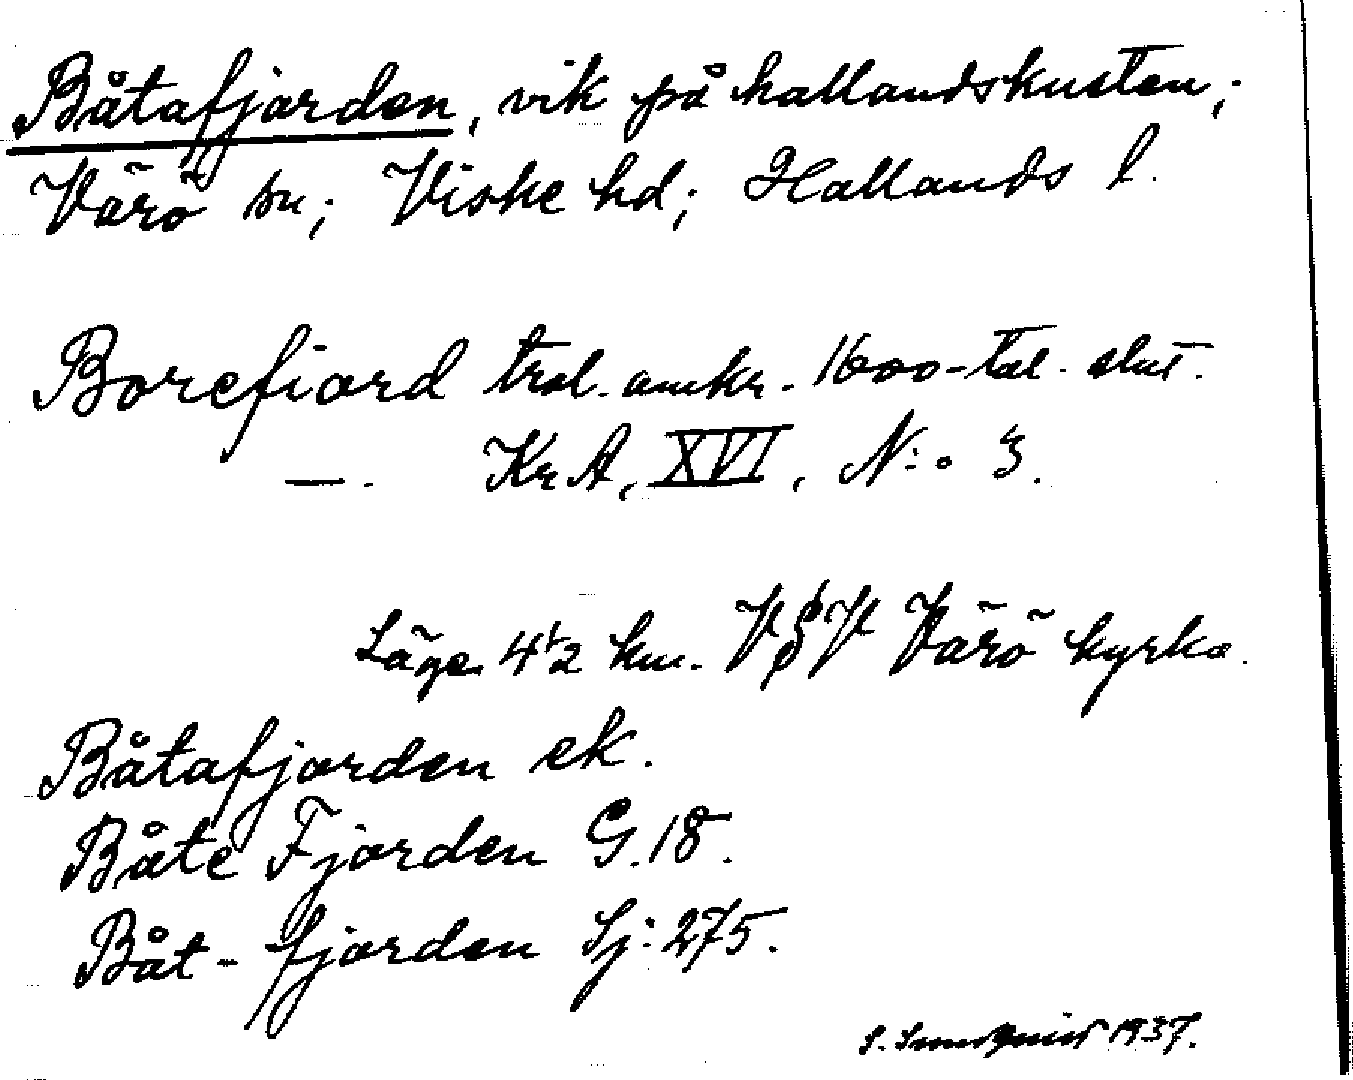 Båtafjorden, vik på hallandskusten;
Värö sn; Viske hd; Hallands l.
Borefiord trol. omkr. 1600-tal. slut.
—. Kr A, XVI, N:o 3.
Läge 4 1/2 km. V § V Värö kyrka.
Båtafjorden ek.
Båte Fjorden G.18.
Båt-fjorden Sj: 275.
S. 1937.